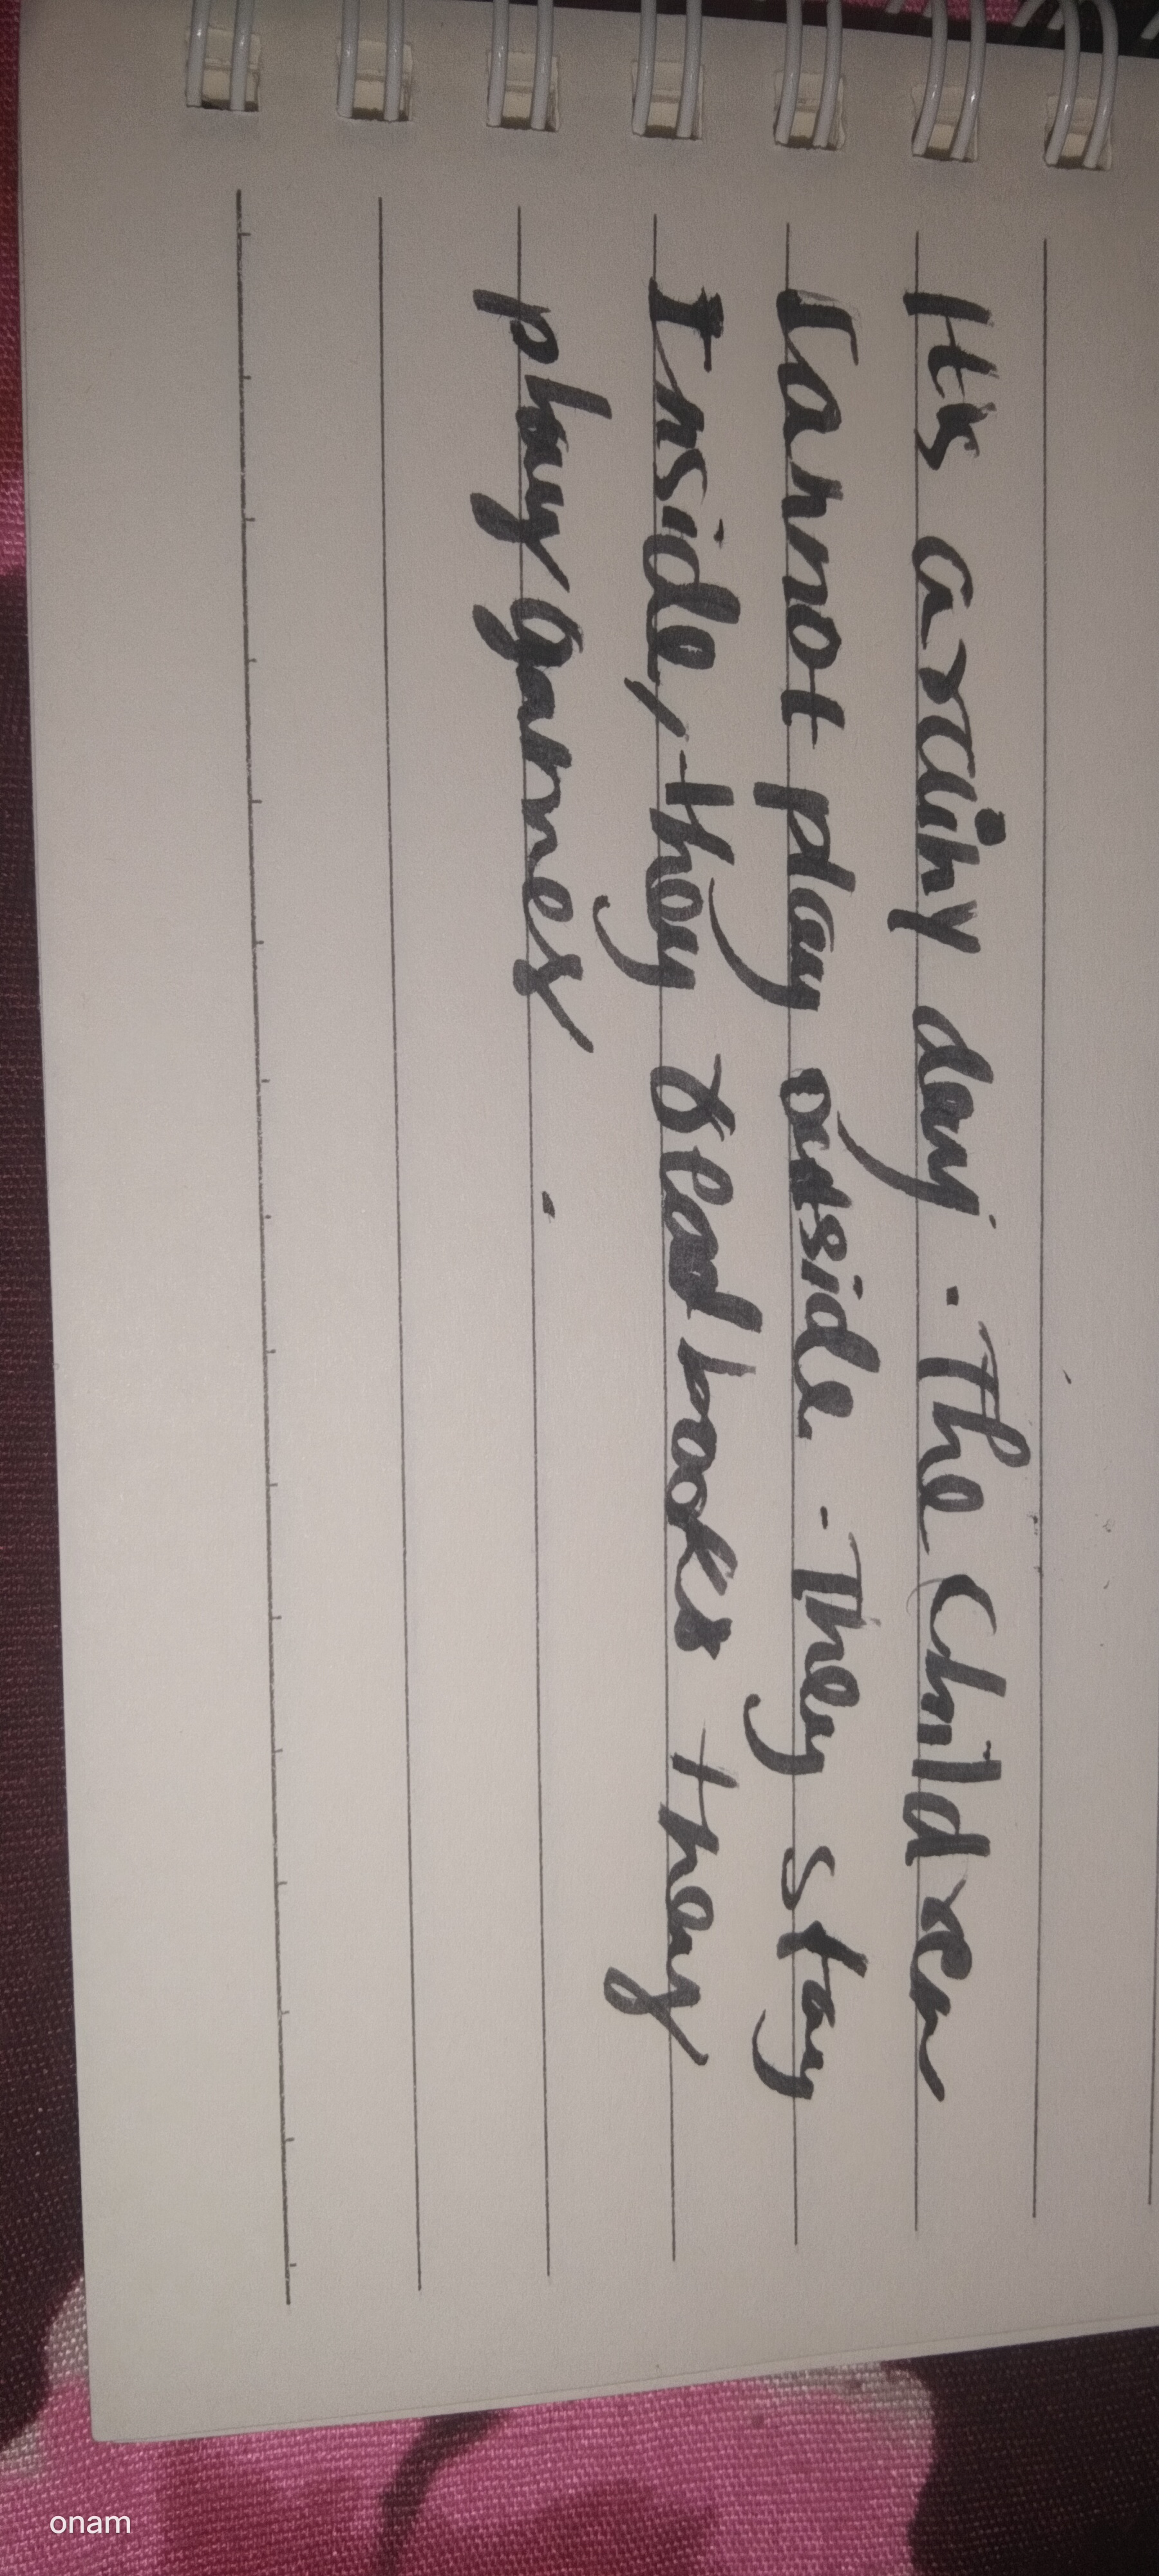 It's a rainy day. The Children
Cannot play outside. They stay
Inside, they read books they
play games.
onam